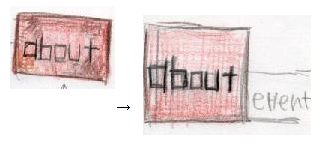 about
→
about
event